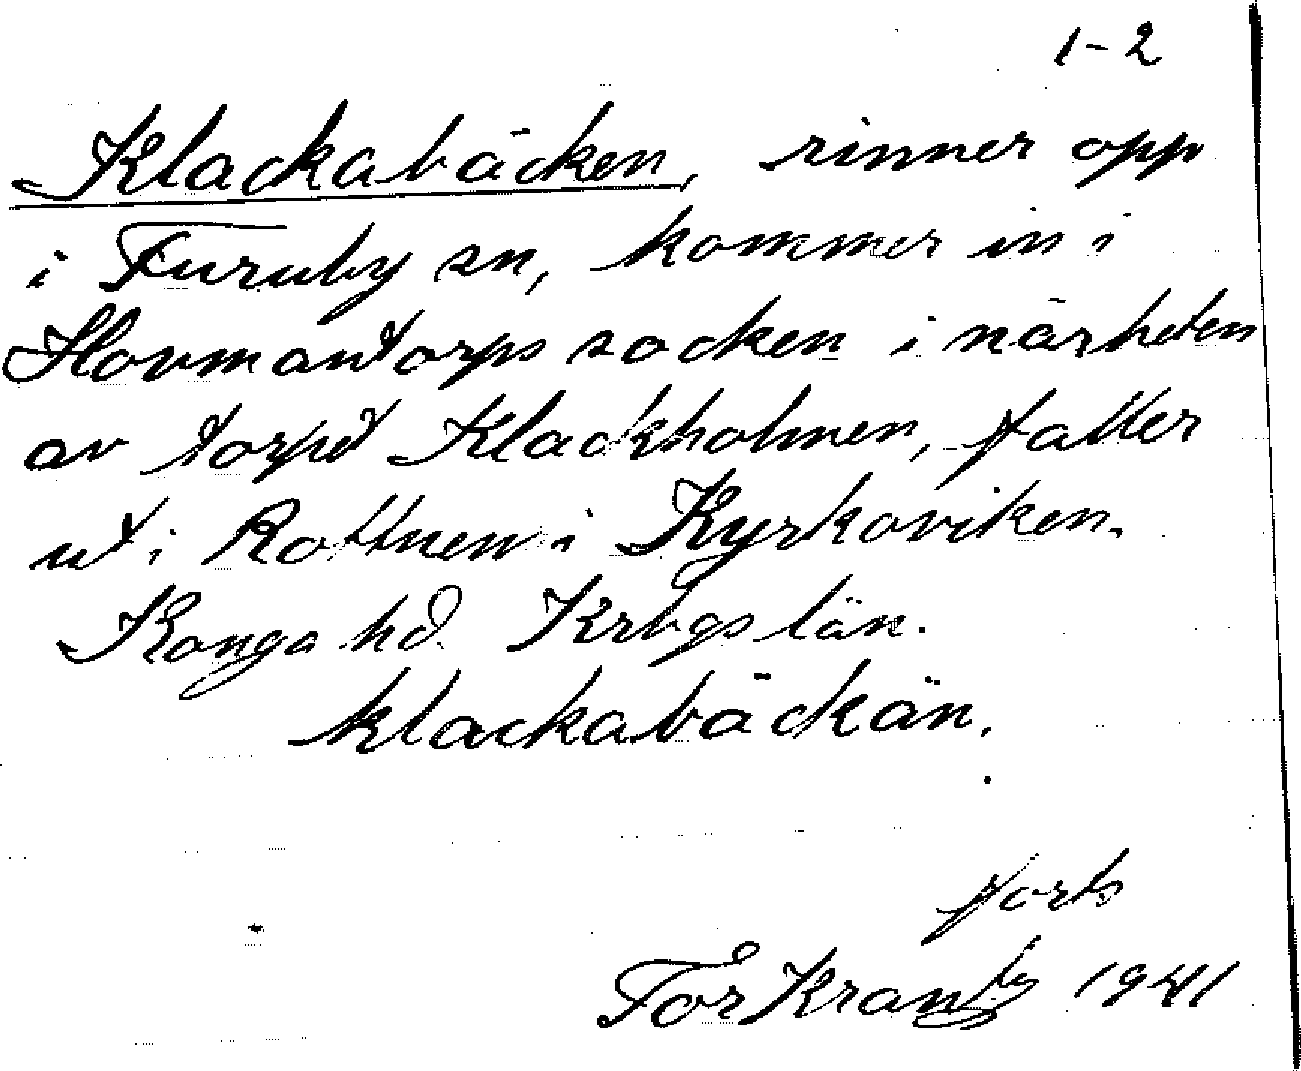 1-2
Klackabäcken, rinner opp
i Furuby sn, kommer in i
Hovmantorps socken i närheten
av torpet Klackholmen, faller
ut i Rottnen i Kyrkoviken.
Konga hd. Krbgs län.
klackabäckän.
forts
Tor Krantz 1941